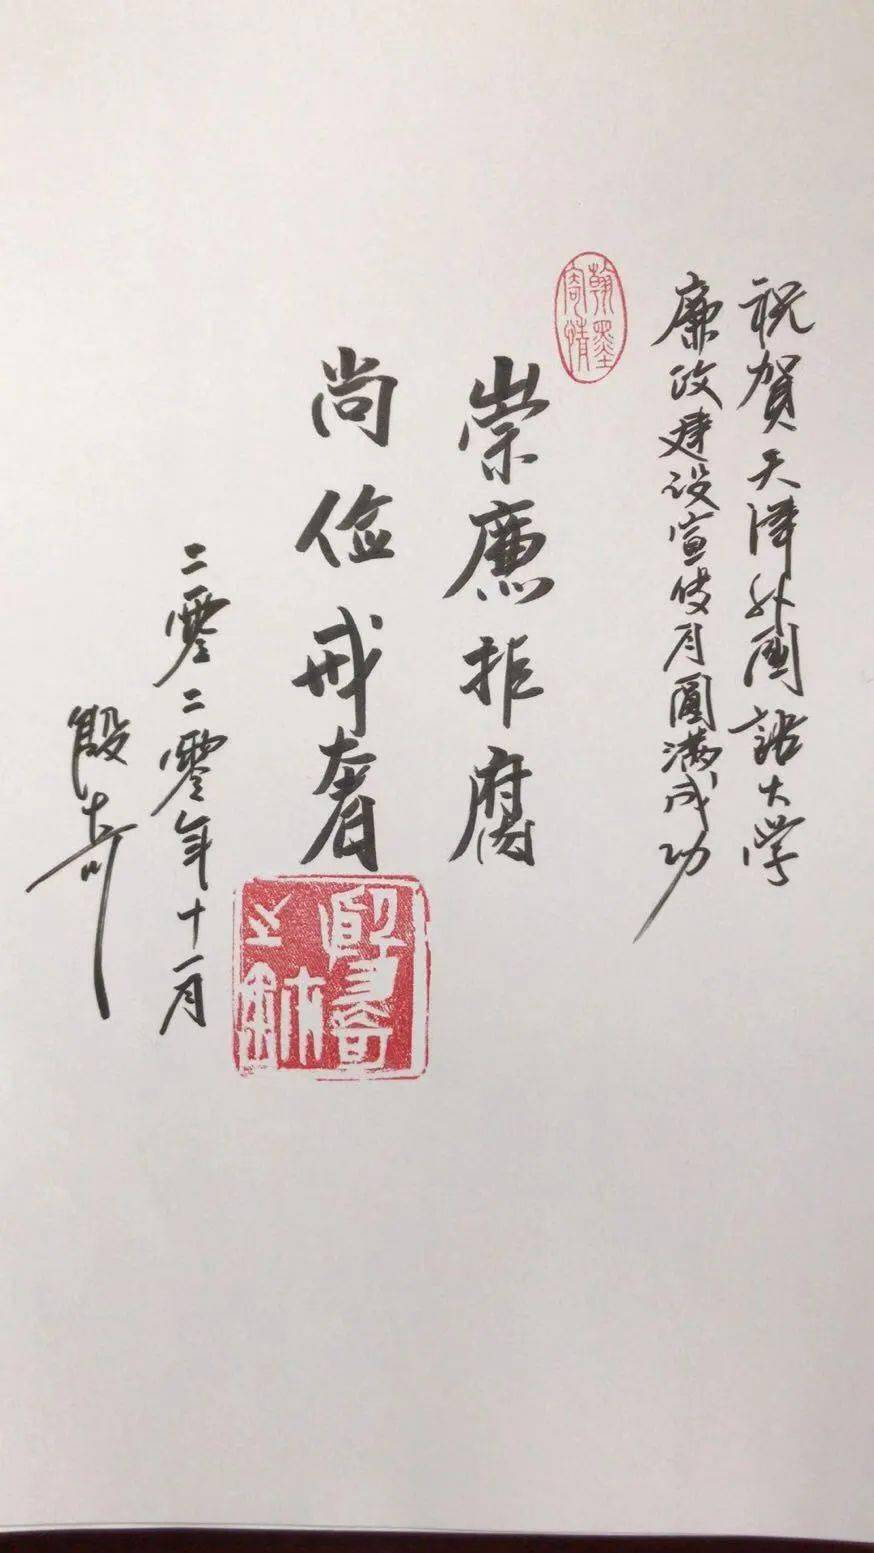 祝贺天津外国语大学
廉政建设宣传月圆满成功
翰墨
寄情
崇廉拒腐
尚俭戒奢
二零二零年十一月
殷奇